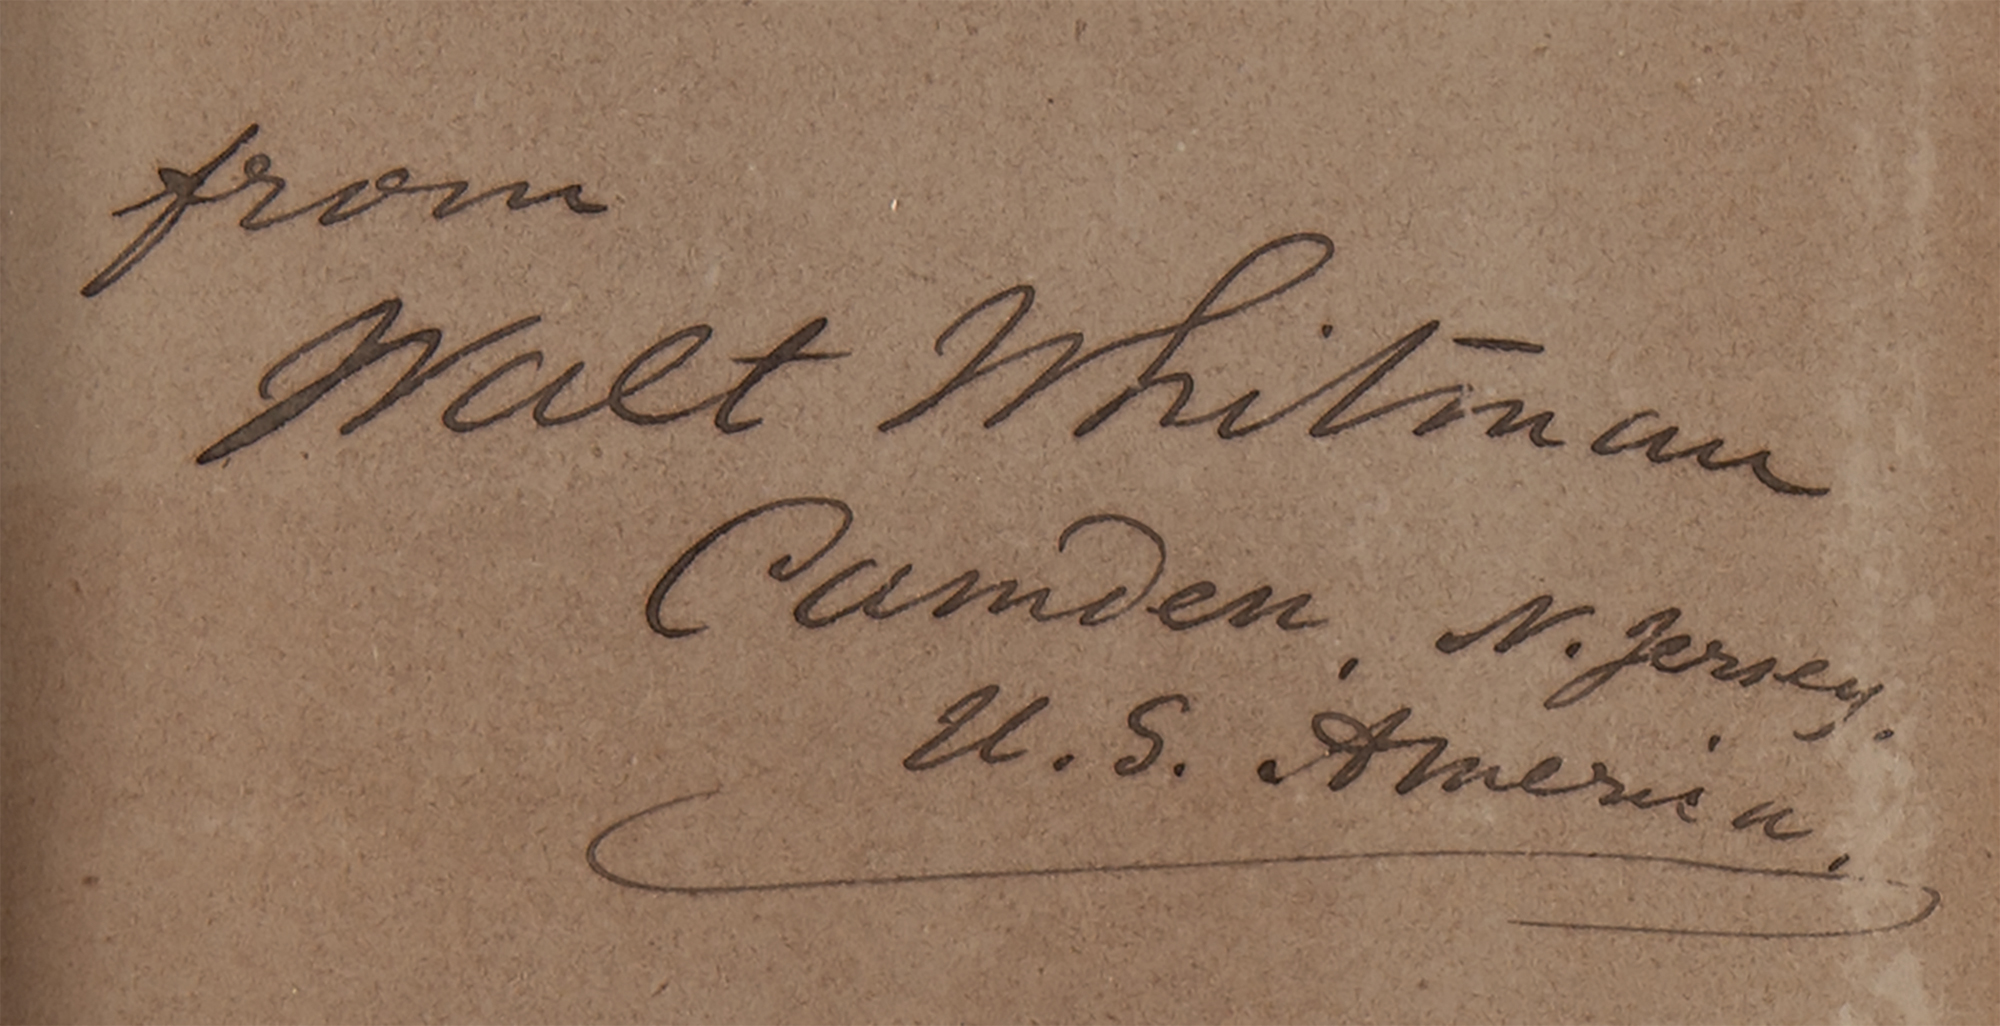 from
Walt Whitman
Camden, N. Jersey.
U. S. America.